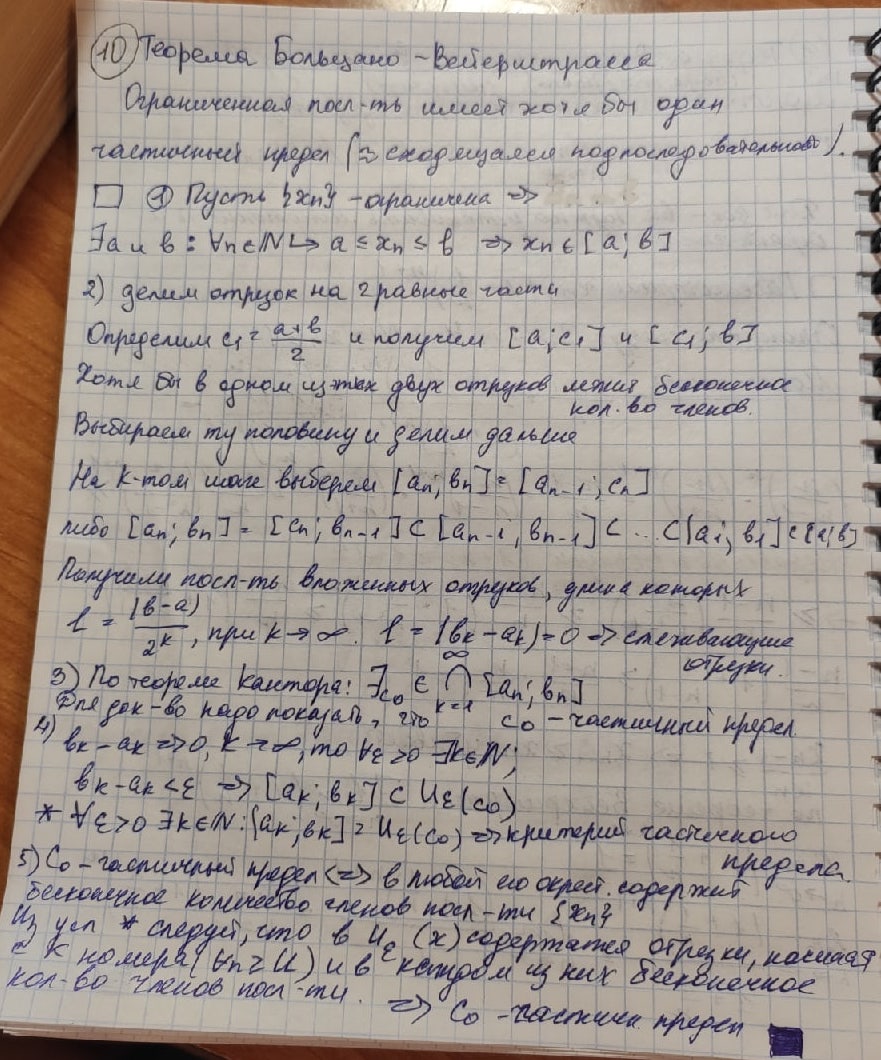 10 Теорема Больцано - Вейерштрасса
Ограниченная посл-ть имеет хотя бы один
частичный предел (≈ сходящаяся подпоследовательность).
□ ① Пусть {xn} - ограничена =>
∃a и b : ∀n∈N ↳ a ≤ xn ≤ b => xn ∈ [a; b]
2) делим отрезок на 2 равные части
Определим c1 = (a+b)/2 и получим [a; c1] и [c1; b]
Хотя бы в одном из тех двух отрезков лежит бесконечное
кол-во членов.
Выбираем ту половину и делим дальше
На k-том шаге выберем [an; bn] = [an-1; cn]
либо [an; bn] = [cn; bn-1] ⊂ [an-1, bn-1] ⊂ ... ⊂ [a1; b1] ⊂ [a; b]
Получили посл-ть вложенных отрезков, длина которых
l = (b-a)/2^k, при k → ∞. l = (bk - ak) = 0 => стягивающиеся
отрезки.
3) По теореме Кантора: ∃c0 ∈ ∞⋂k=1 [an; bn]
Для док-во надо показать, что c0 - частичный предел.
4) bk - ak => 0, k → ∞, то ∀ε > 0 ∃k∈N;
bk - ak < ε => [ak; bk] ⊂ Uε(c0)
* ∀ε>0 ∃k∈N: [ak; bk] ⊂ Uε(c0) => критерий частичного
предела.
5) C0 - частичный предел <=> в любой его окрест. содержит
бесконечное количество членов посл-ти {xn}
Из усл * следует, что в Uε (x) содержатся отрезки, начиная
с K номера (∀n ≥ K) и в каждом из них бесконечное
кол-во членов посл-ти.
=> C0 - частичн предел